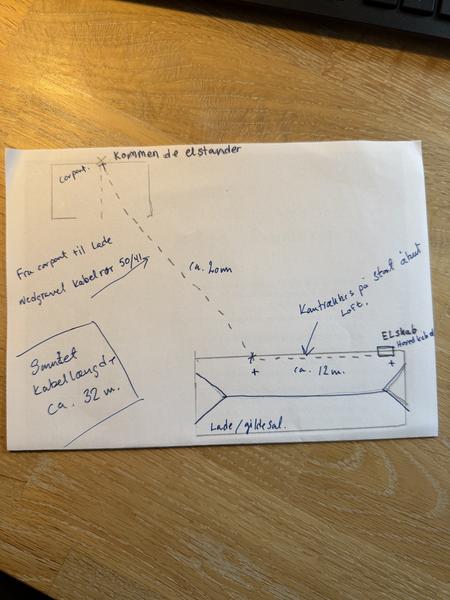 Kommende elstander
carport.
Fra carport til Lade
nedgravet Kabelrør 50/41
ca. 20m
Kan trækkes på stort åbent
Loft.
ELskab
Hovedkabel
+
ca. 12 m.
+
Samlet
Kabellængde
ca. 32 m.
Lade/gildesal.